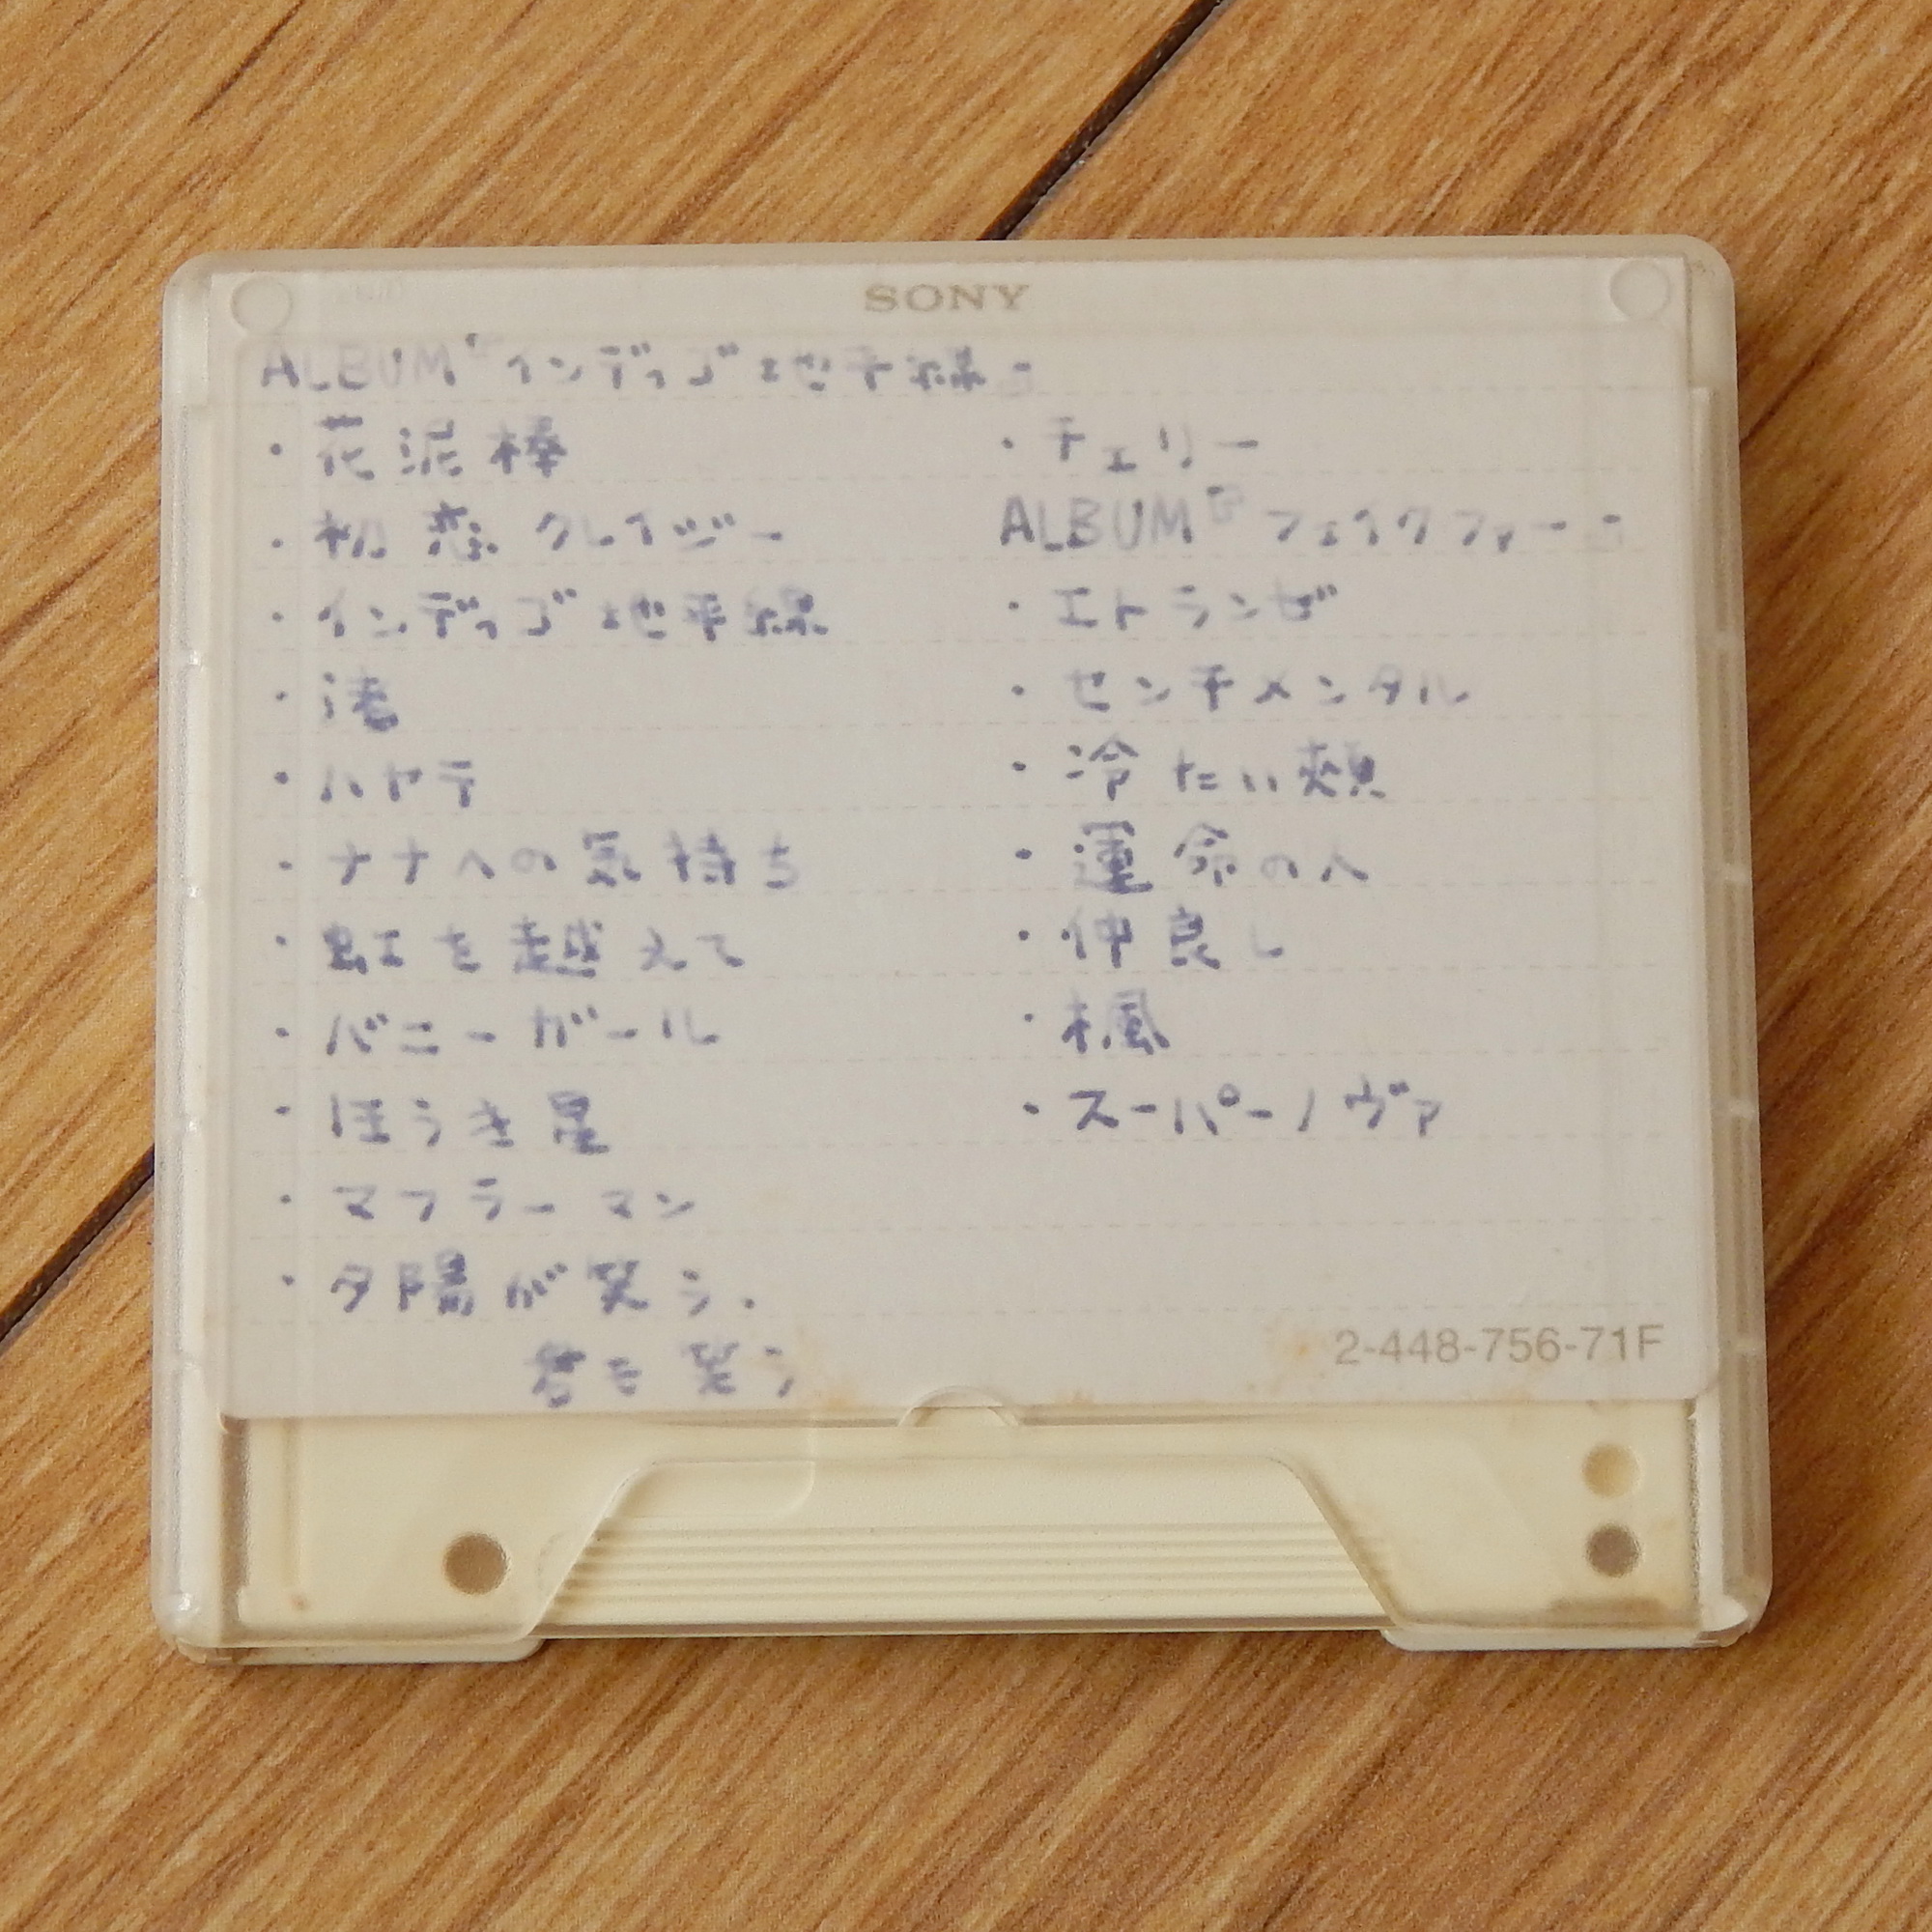 SONY
ALBUM『インディゴ地平線』
・花泥棒
・初恋クレイジー
・インディゴ地平線
・渚
・ハヤテ
・ナナへの気持ち
・虹を越えて
・バニーガール
・ほうき星
・マフラーマン
・夕陽が笑う、
君も笑う
・チェリー
ALBUM『フェイクファー』
・エトランゼ
・センチメンタル
・冷たい頬
・運命の人
・仲良し
・楓
・スーパーノヴァ
2-448-756-71F